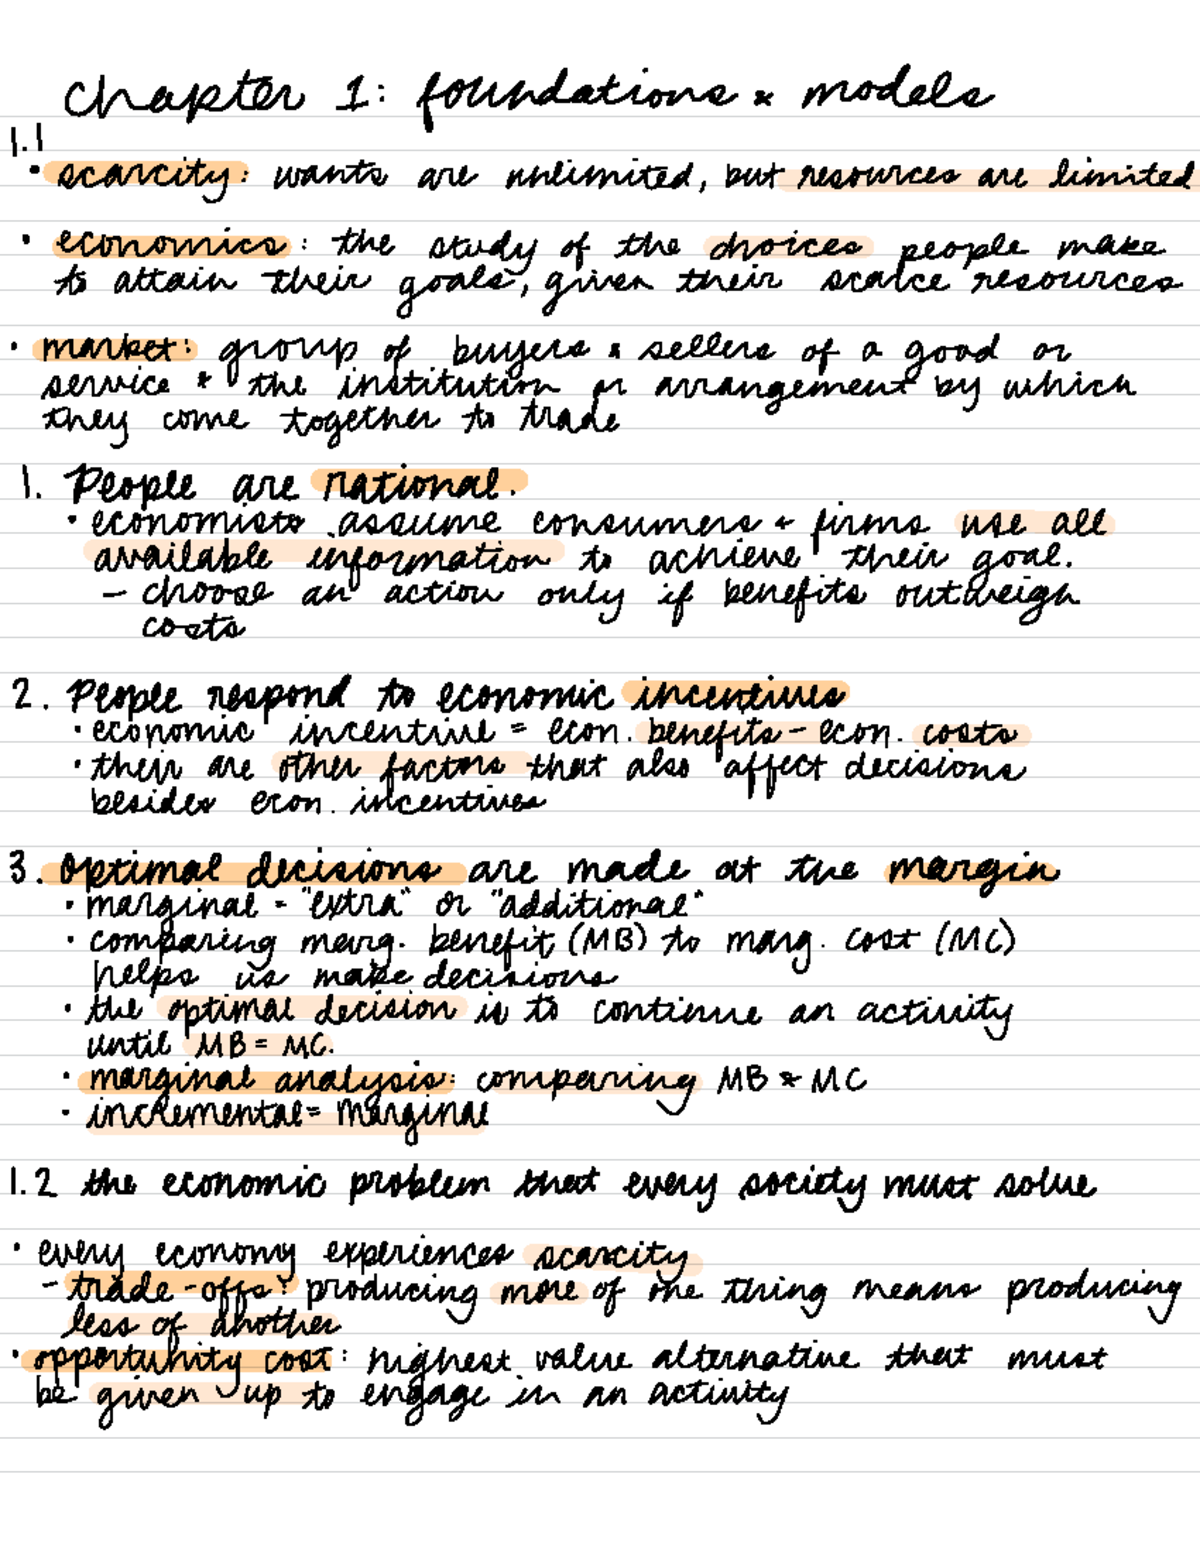 chapter 1: foundations & models
1.1
• scarcity: wants are unlimited, but resources are limited
• economics: the study of the choices people make
to attain their goals, given their scarce resources
• market: group of buyers & sellers of a good or
service & the institution or arrangement by which
they come together to trade
1. People are rational.
• economists assume consumers & firms use all
available information to achieve their goal.
– choose an action only if benefits outweigh
costs
2. People respond to economic incentives
• economic incentive = econ. benefits – econ. costs
• their are other factors that also affect decisions
besides econ. incentives
3. Optimal decisions are made at the margin
• marginal = "extra" or "additional"
• comparing marg. benefit (MB) to marg. cost (MC)
helps us make decisions
• the optimal decision is to continue an activity
until MB = MC.
• marginal analysis: comparing MB & MC
• incremental = marginal
1.2 the economic problem that every society must solve
• every economy experiences scarcity
– trade-offs: producing more of one thing means producing
less of another
• opportunity cost: highest value alternative that must
be given up to engage in an activity